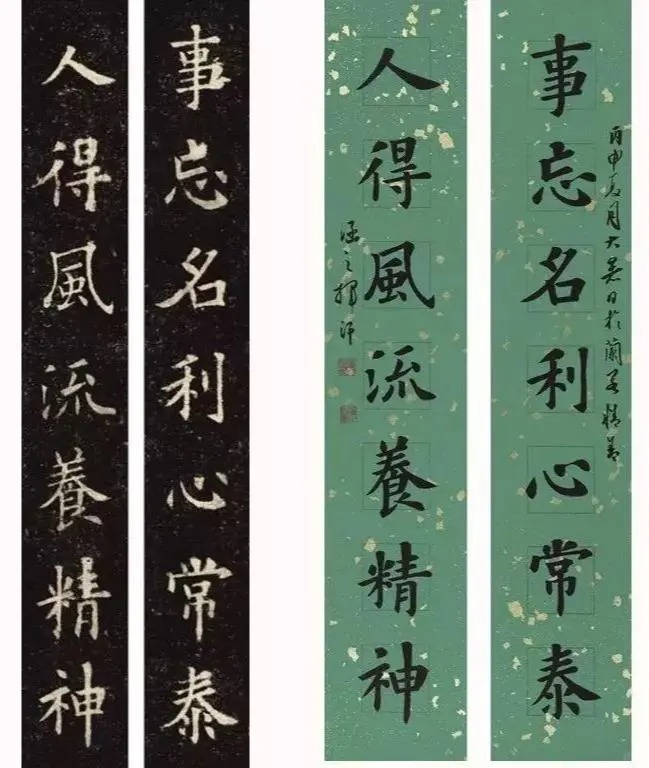 丙申夏月大暑日於蘭若精舍
事忘名利心常泰
人得風流養精神
涵之揮汗
事忘名利心常泰
人得風流養精神